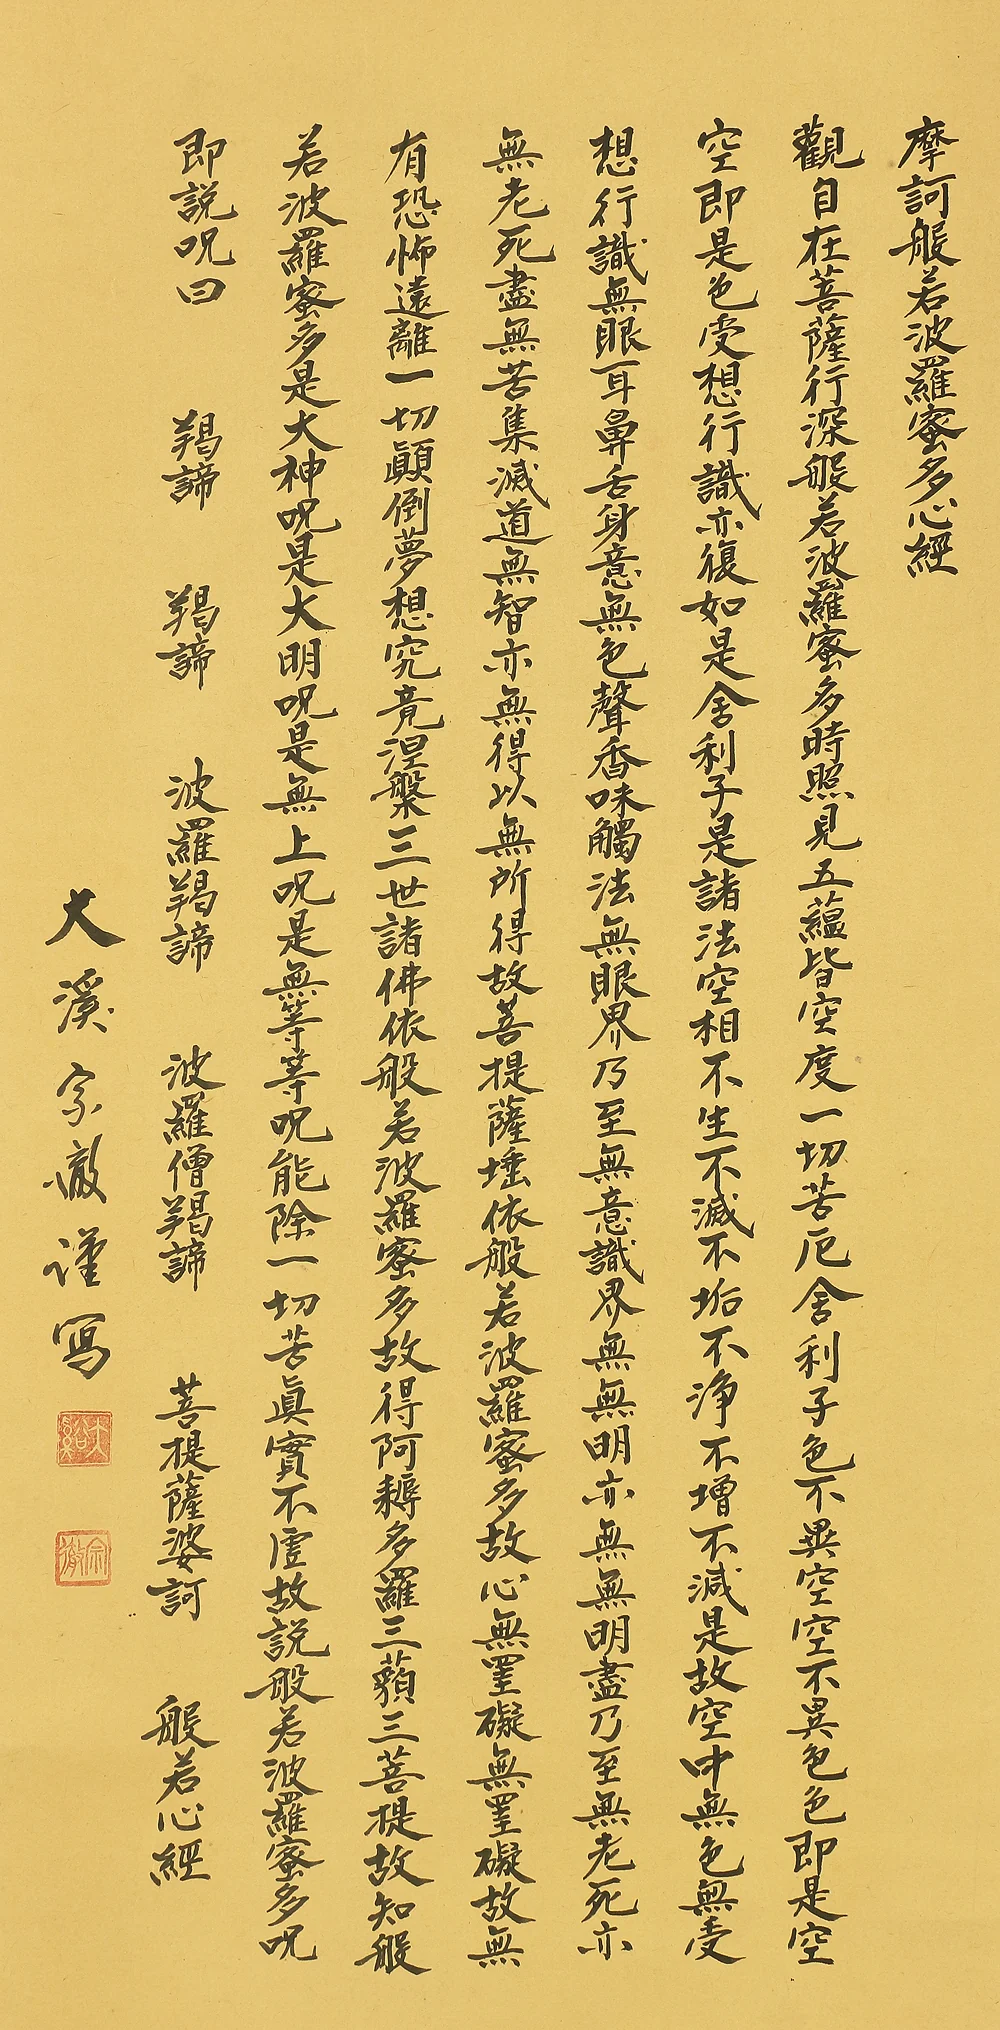 摩訶般若波羅蜜多心經
觀自在菩薩行深般若波羅蜜多時照見五蘊皆空度一切苦厄舍利子色不異空空不異色色即是空
空即是色受想行識亦復如是舍利子是諸法空相不生不滅不垢不淨不增不減是故空中無色無受
想行識無眼耳鼻舌身意無色聲香味觸法無眼界乃至無意識界無無明亦無無明盡乃至無老死亦
無老死盡無苦集滅道無智亦無得以無所得故菩提薩埵依般若波羅蜜多故心無罣礙無罣礙故無
有恐怖遠離一切顛倒夢想究竟涅槃三世諸佛依般若波羅蜜多故得阿耨多羅三藐三菩提故知般
若波羅蜜多是大神呪是大明呪是無上呪是無等等呪能除一切苦眞實不虛故説般若波羅蜜多呪
即説呪曰 羯諦 羯諦 波羅羯諦 波羅僧羯諦 菩提薩婆訶 般若心經
大溪宗徹谨寫
宗徹